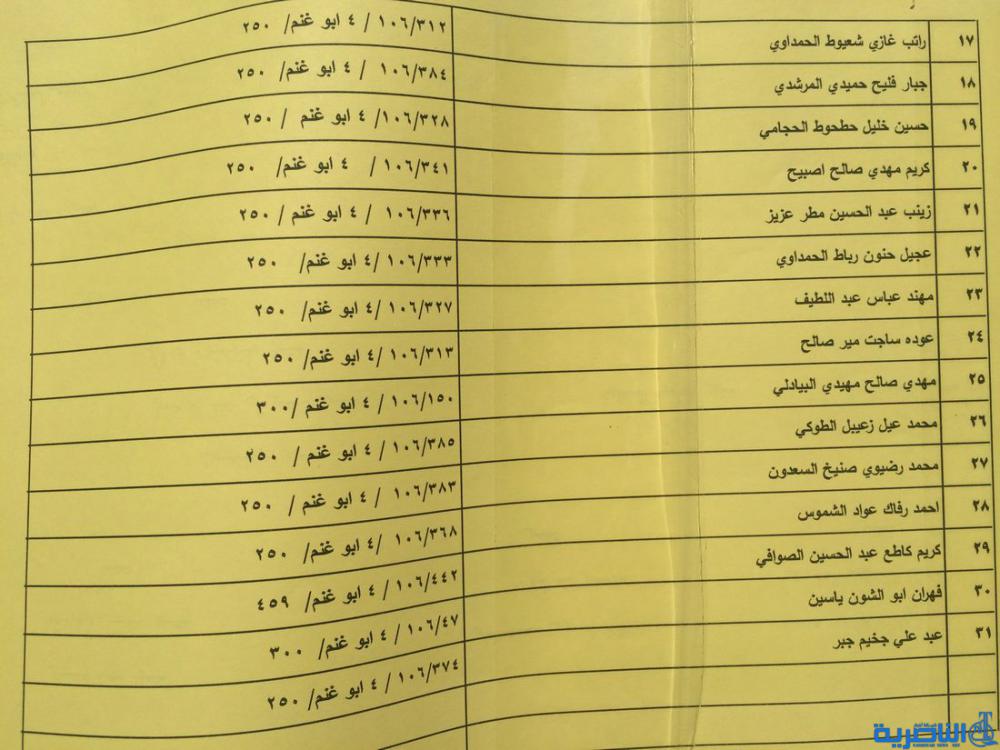 ١٧ راتب غازي شعيوط الحمداوي ١٠٦/٣١٢ / ٤ ابو غنم/ ٢٥٠
١٨ جبار فليح حميدي المرشدي ١٠٦/٣٨٤ / ٤ ابو غنم/ ٢٥٠
١٩ حسين خليل حطحوط الحجامي ١٠٦/٣٢٨/ ٤ ابو غنم / ٢٥٠
٢٠ كريم مهدي صالح اصبيح ١٠٦/٣٤١ / ٤ ابو غنم/ ٢٥٠
٢١ زينب عبد الحسين مطر عزيز ١٠٦/٣٣٦ / ٤ ابو غنم / ٢٥٠
٢٢ عجيل حنون رباط الحمداوي ١٠٦/٣٣٣ /٤ ابو غنم/ ٢٥٠
٢٣ مهند عباس عبد اللطيف ١٠٦/٣٢٧ /٤ ابو غنم/ ٢٥٠
٢٤ عوده ساجت مير صالح ١٠٦/٣١٣ /٤ ابو غنم/ ٢٥٠
٢٥ مهدي صالح مهيدي البيادلي ١٠٦/١٥٠ / ٤ ابو غنم /٣٠٠
٢٦ محمد عيل زعيبل الطوكي ١٠٦/٣٨٥ / ٤ ابو غنم / ٢٥٠
٢٧ محمد رضيوي صنيخ السعدون ١٠٦/٣٨٣ / ٤ ابو غنم/ ٢٥٠
٢٨ احمد رفاك عواد الشموس ١٠٦/٣٦٨ /٤ ابو غنم/ ٢٥٠
٢٩ كريم كاطع عبد الحسين الصوافي ١٠٦/٤٤٢ / ٤ ابو غنم/ ٤٥٩
٣٠ فهران ابو الشون ياسين ١٠٦/٤٧ / ٤ ابو غنم/ ٣٠٠
٣١ عبد علي جخيم جبر ١٠٦/٣٧٤ / ٤ ابو غنم/ ٢٥٠
الناصرية